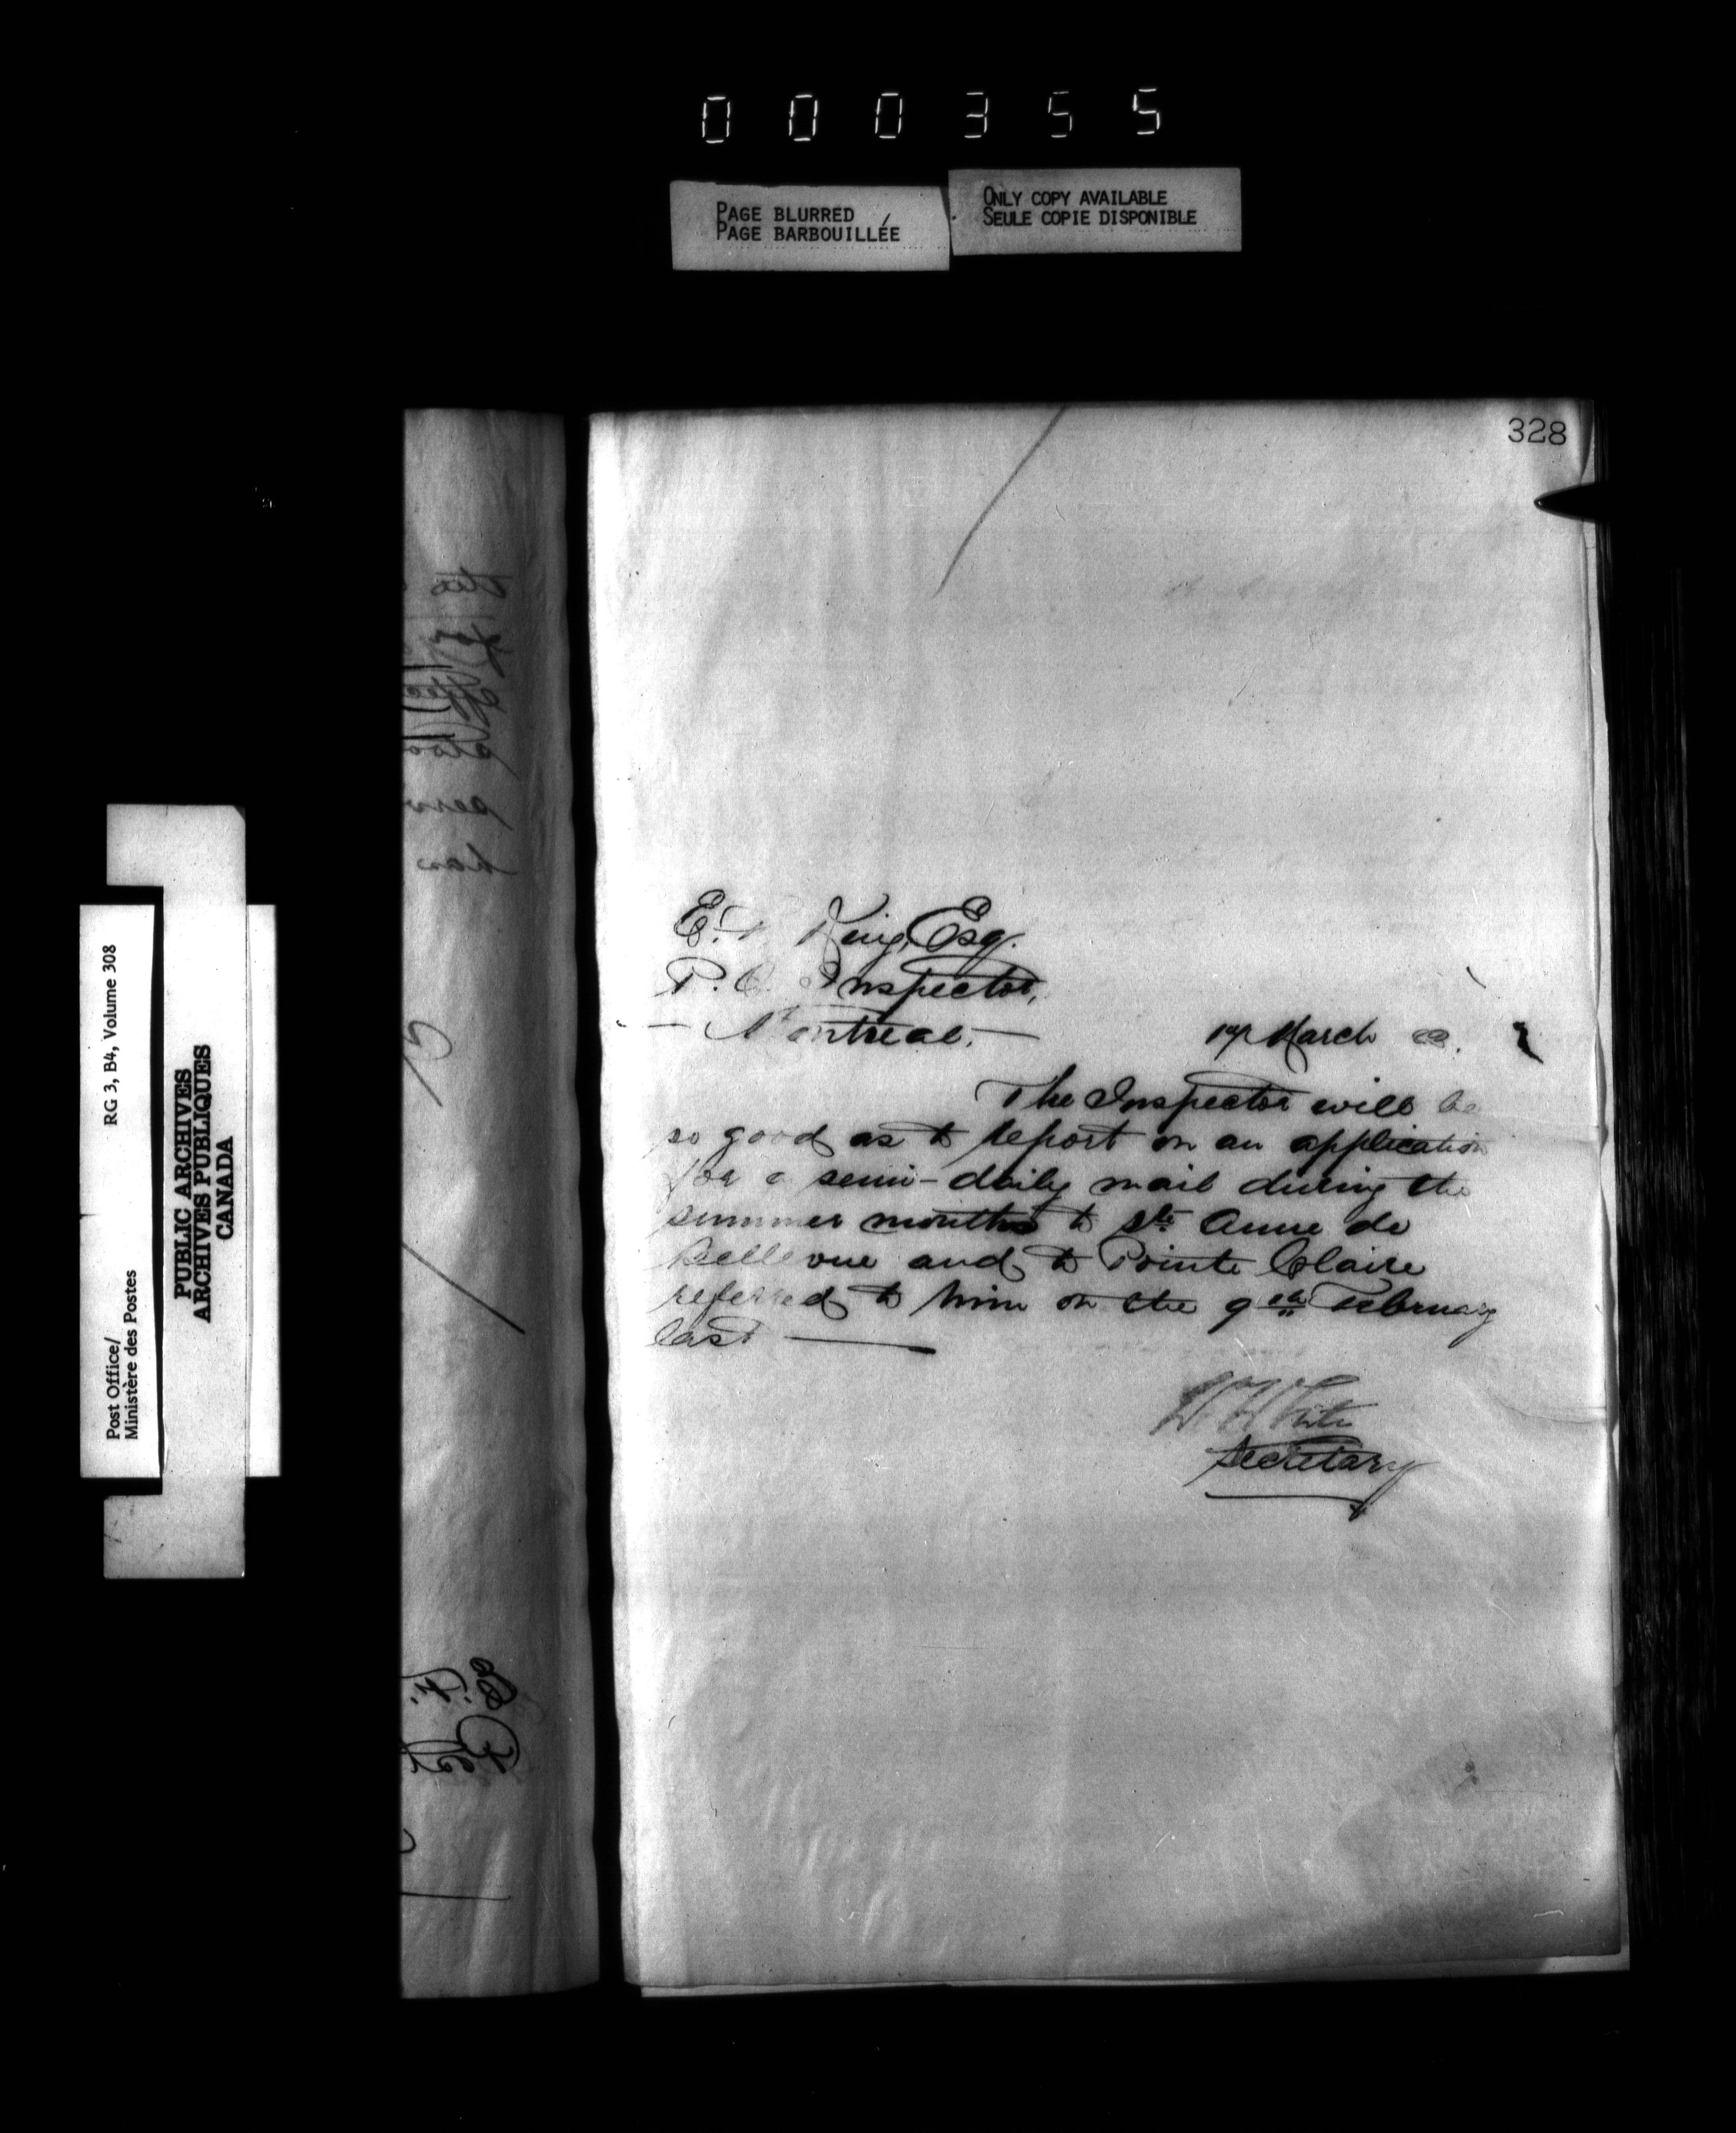 000355
PAGE BLURRED
PAGE BARBOUILLÉE
ONLY COPY AVAILABLE
SEULE COPIE DISPONIBLE
328
RG 3, B4, Volume 308
Post Office/
Ministère des Postes
PUBLIC ARCHIVES
ARCHIVES PUBLIQUES
CANADA
E. King, Esq.
P.O. Inspector,
— Montreal. —
March
The Inspector will be
so good as to report on an application
for a semi-daily mail during the
summer months to Ste Anne de
Bellevue and to Pointe Claire
referred to him on the 9th February
last —
W White
Secretary